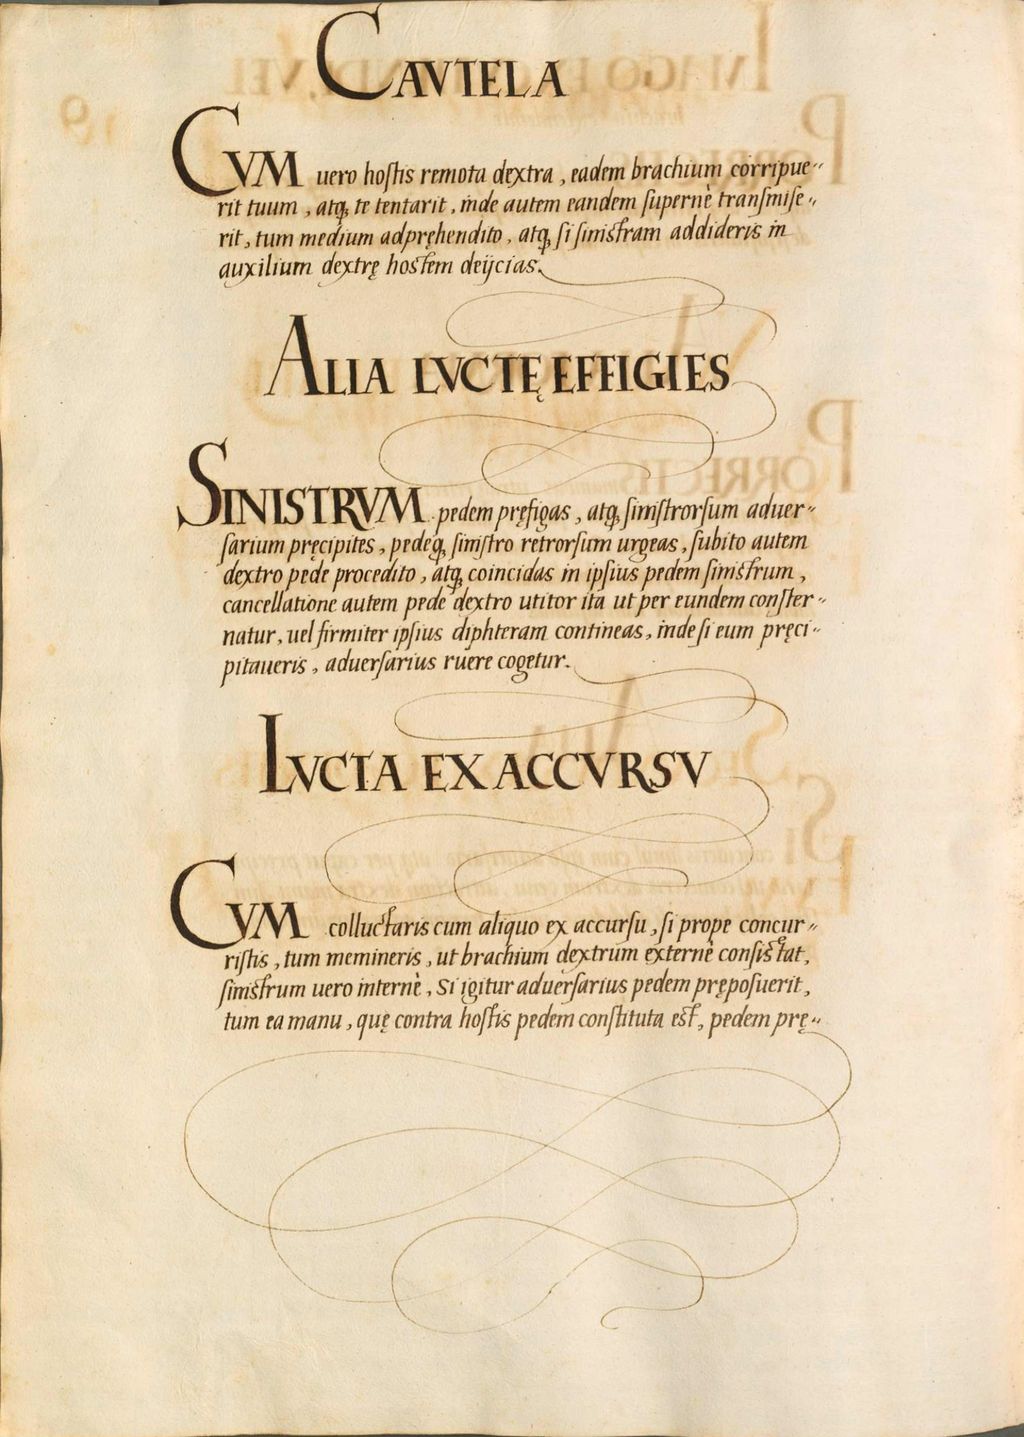 CAVTELA
CVM uero hoſtis remota dextra, eadem brachium corripue-
rit tuum, atq, te tentarit, inde autem eandem ſupernè tranſmiſe-
rit, tum medium adpręhendito, atq, ſi ſiniſtram addideris in
auxilium dextrę hoſtem deijcias.
ALIA LVCTĘ EFFIGIES
SINISTRVM pedem pręfigas, atq, ſiniſtrorſum aduer-
ſarium pręcipites, pedeq, ſiniſtro retrorſum urgeas, ſubito autem
dextro pede procedito, atq, coincidas in ipſius pedem ſiniſtrum,
cancellatione autem pede dextro utitor ita ut per eundem conſter-
natur, uel firmiter ipſius diphteram contineas, inde ſi eum pręci-
pitaueris, aduerſarius ruere cogetur.
LVCTA EX ACCVRSV
CVM colluctaris cum aliquo ex accurſu, ſi prope concur-
riſtis, tum memineris, ut brachium dextrum externè conſiſtat,
ſiniſtrum uero internè, Si igitur aduerſarius pedem prępoſuerit,
tum ea manu, quę contra hoſtis pedem conſtituta eſt, pedem prę-